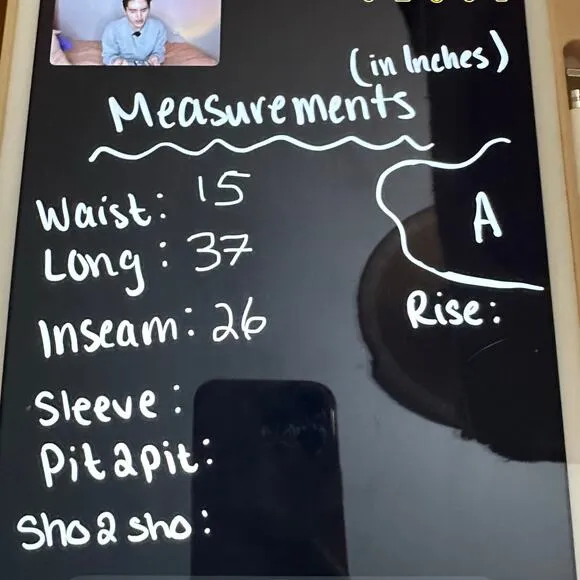 (in Inches)
Measurements
Waist: 15
Long: 37
A
Inseam: 26
Rise:
Sleeve:
Pit2pit:
Sho2sho: